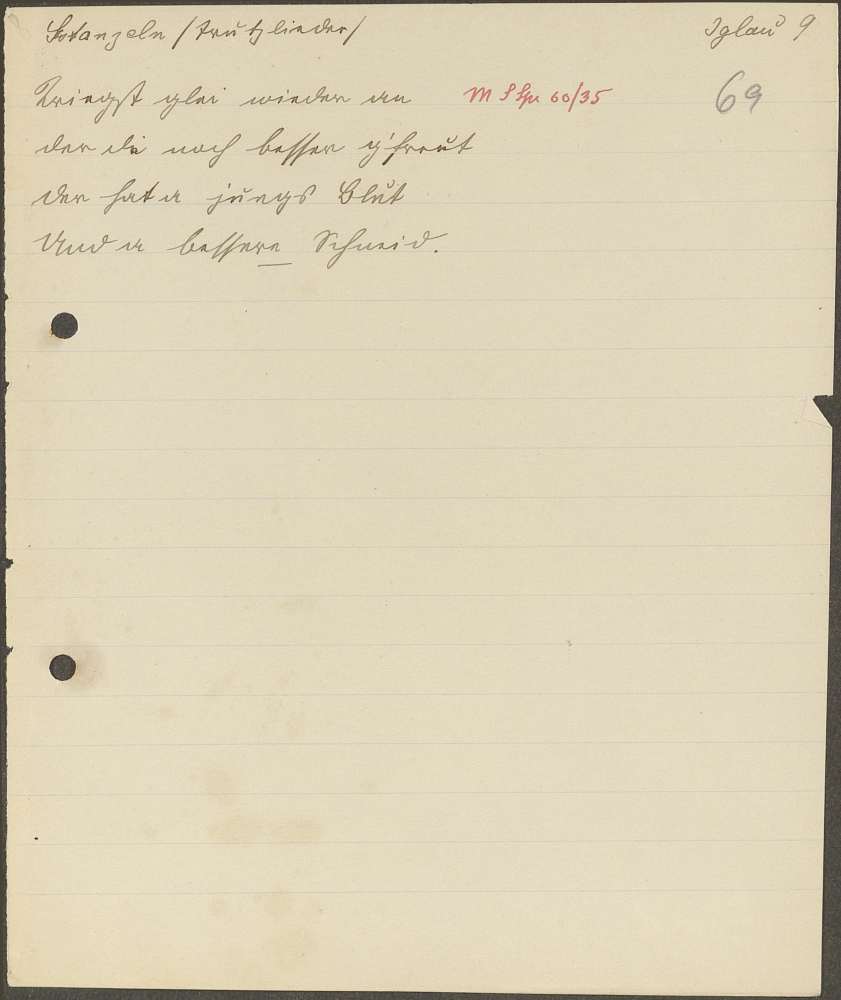 Sstanzeln /Trutzlieder/
Iglau 9
Kriegst glei wieder an
M S Spr 60/35
69
der di noch besser g'freut
der hat a jungs Blut
Und a bessere Schneid.